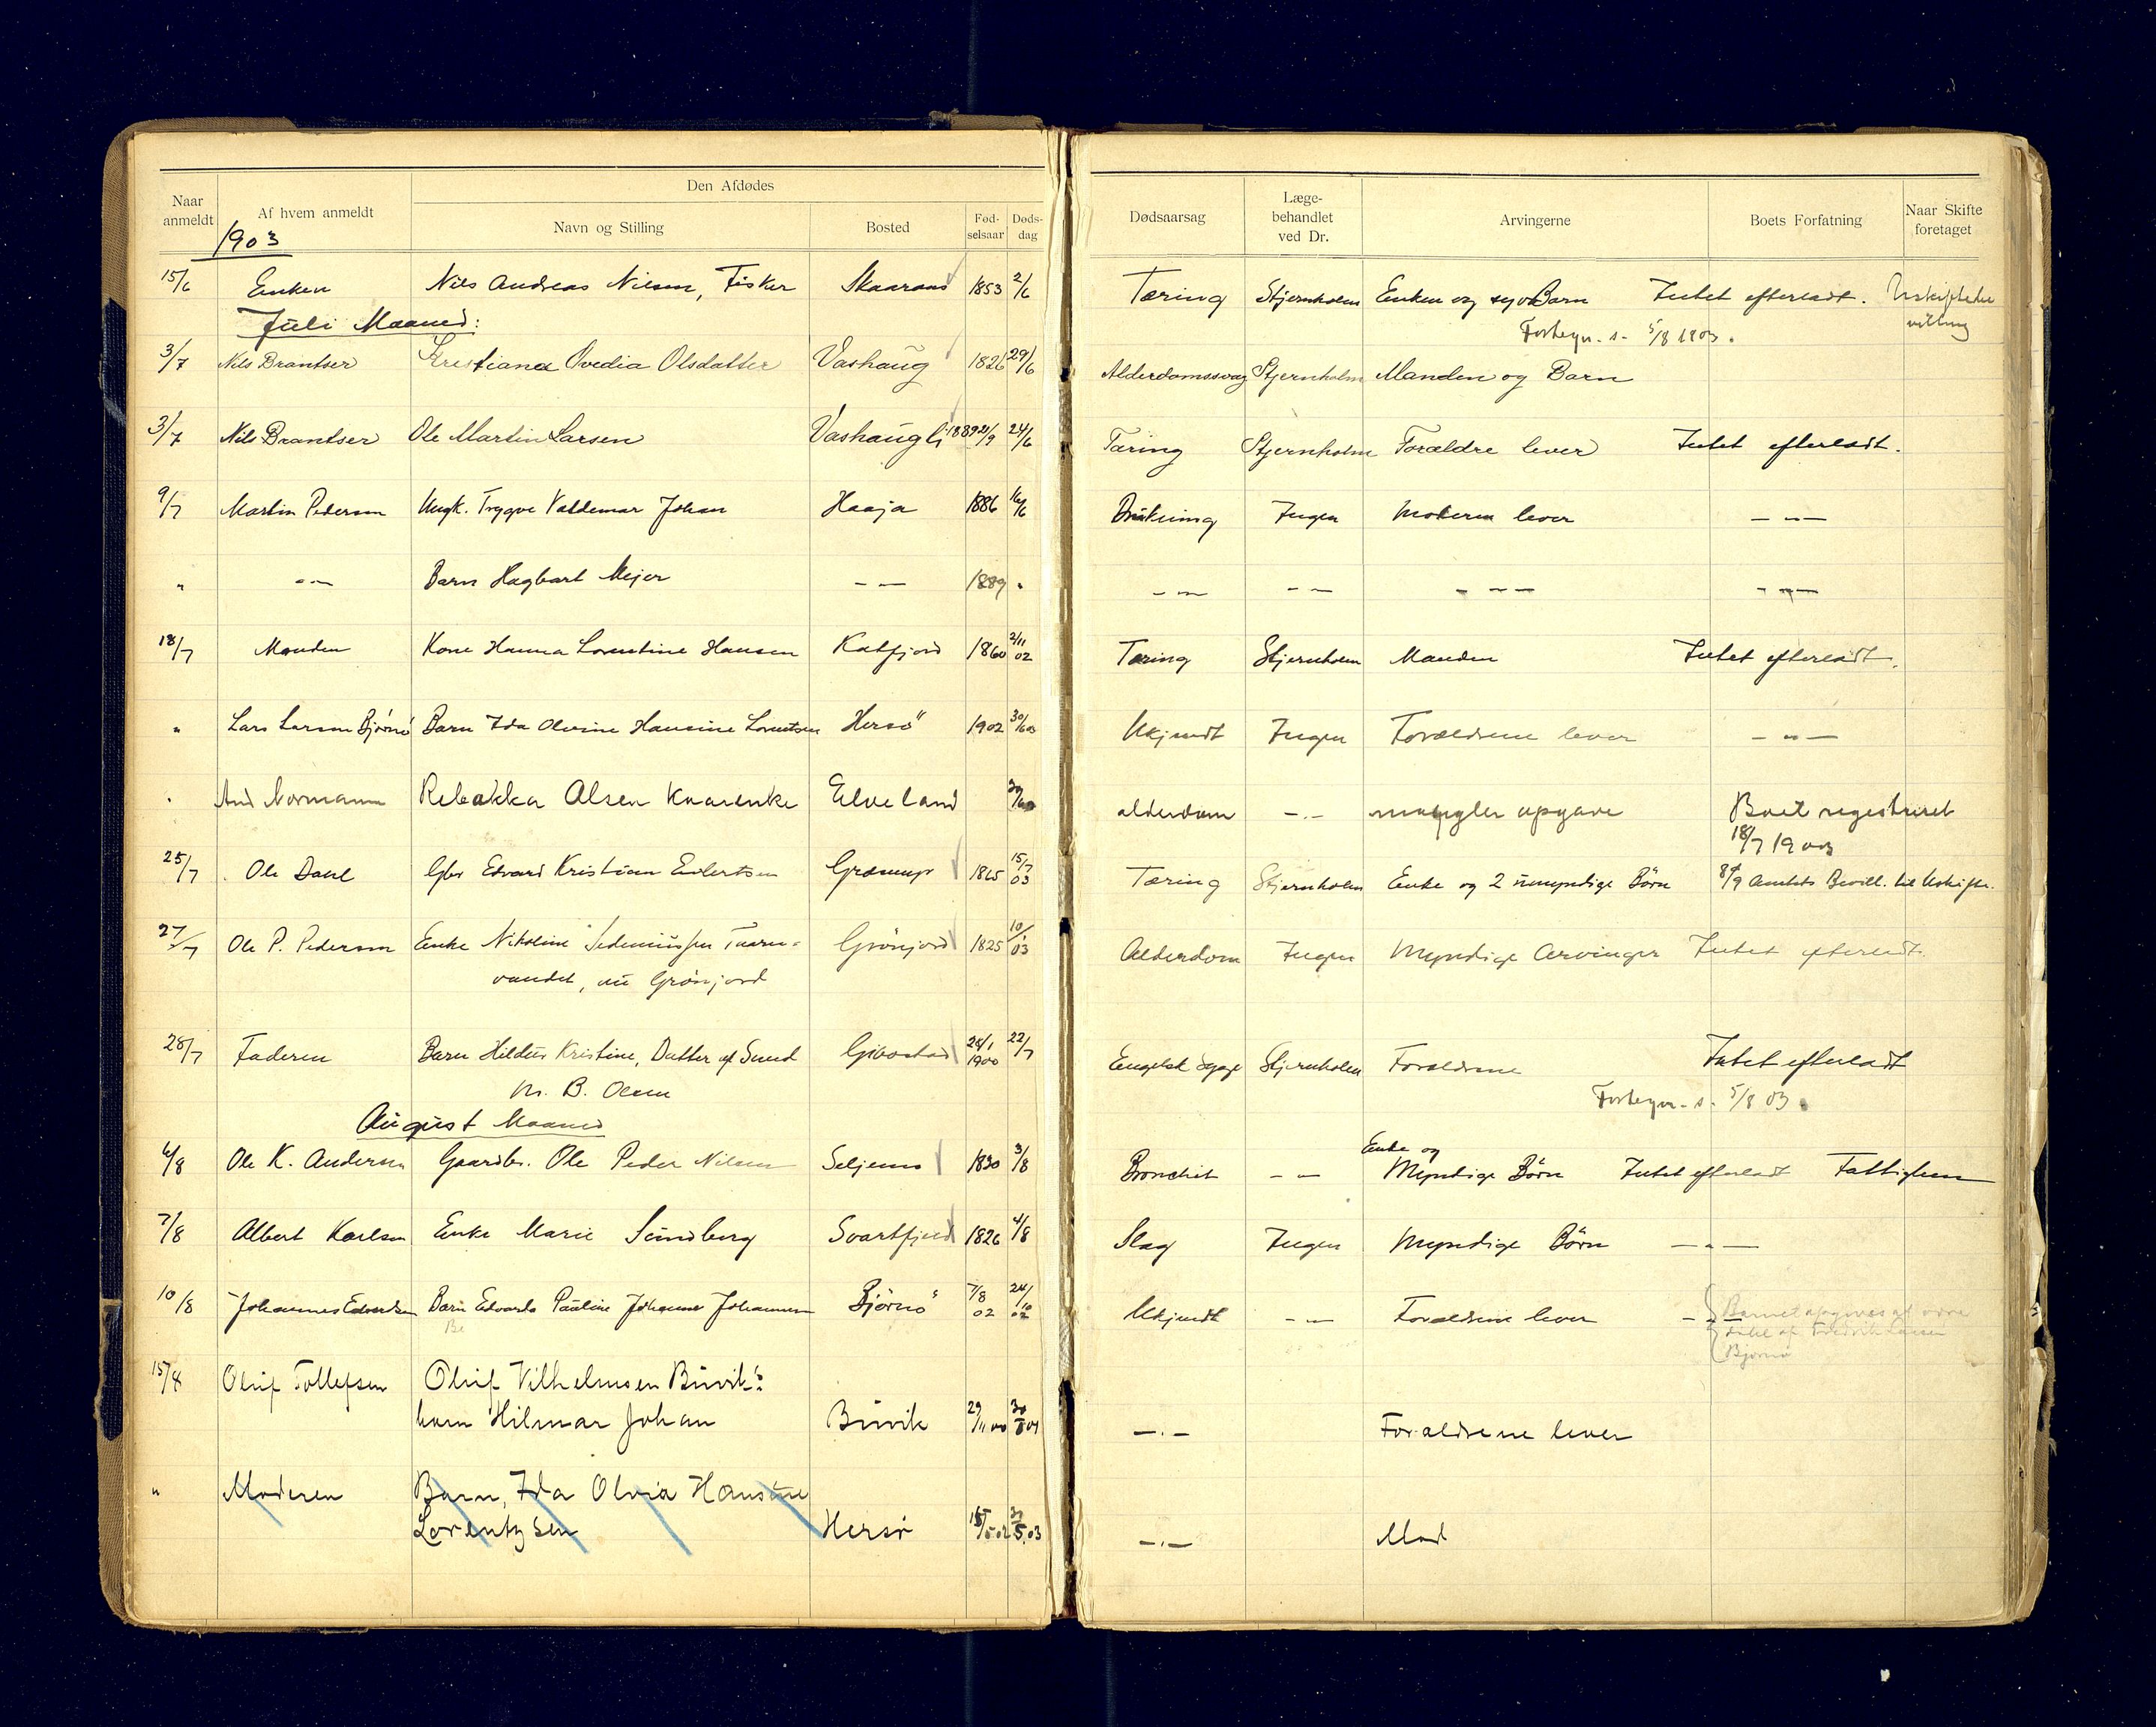 Den Afdødes
Naar anmeldt
Af hvem anmeldt
Navn og Stilling
Bosted
Fød-selsaar
Døds-dag
Dødsaarsag
Læge-behandlet ved Dr.
Arvingerne
Boets Forfatning
Naar Skifte foretaget
1903
15/6 Enken Nils Andreas Nilsen, Fisker Skaaraas 1853 2/6 Tæring Stjernholm Enken og syv Barn Intet efterladt.
5/8 1903.
Juli Maaned:
3/7 Nils Brantser Kristiana Ovedia Olsdatter Vashaug 1826 29/6 Alderdomssvag Stjernholm Manden og Barn
3/7 Nils Brantser Ole Martin Larsen Vashaugli 1889 21/9 24/6 Tæring Stjernholm Forældre lever Intet efterladt.
9/7 Martin Pedersen Ungk. Trygve Valdemar Johan Haaja 1886 16/6 Drukning Ingen Moderen lever — „ —
„ — „ — Barn Hagbart Mejer — — 1889 „ — „ — — — — — — — „ —
18/7 Manden Kone Hanna Lorentine Hansen Katfjord 1860 2/11 02 Tæring Stjernholm Manden Intet efterladt.
„ Lars Larsen Bjørnö Barn Ida Olvine Hansine Lorentsen Hersö 1902 30/5 03 Ukjendt Ingen Forældrene lever — „ —
„ And Normann Rebakka Olsen Elveland alderdom — . — mangler opgave Boet registreret
18/7 1903
25/7 Ole Dahl Gbr Edvard Kristian 1865 15/7 03 Tæring Stjernholm Enke og 2 umyndige Börn Amtets Bevill. til Uskifte.
27/7 Ole P. Pedersen Enke Nikoline Grönjord 1825 03 Alderdom Ingen Myndige Arvinger Intet efterladt.
vandet, nu Grönjord
28/7 Faderen Barn Hildur Kristine, Datter af Gibostad 28/1 1900 22/7 Engelsk Syge Stjernholm Forældrene Intet efterladt
M. B. Olsen
5/8 03.
August Maaned
6/8 Ole K. Andersen Gaardbr. Ole Peder Nilsen Seljenes 1830 3/8 Bronchit — — Enke og Myndige Börn Intet efterladt Fattiglem
7/8 Albert Karlsen Enke Marie Sundberg Svartfjeld 1826 4/8 Slag Ingen Myndige Börn — „ —
10/8 Johannes Edvardsen Barn Edvarda Pauline Johanne Johannesen Björnö 7/8 02 24/10 02 Ukjendt — — Forældrene lever Barnet opgives at være
Bjørnø
15/8 Oluf Tollefsen Oluf Vilhelmsen Buvik's
barn Hilmar Johan Buvik 29/11 00 — . — Forældrene lever
„ Moderen Barn, Ida Olvia Hansine
Lorentzsen Hersö 15/5 02 30/5.03 — . — Mod